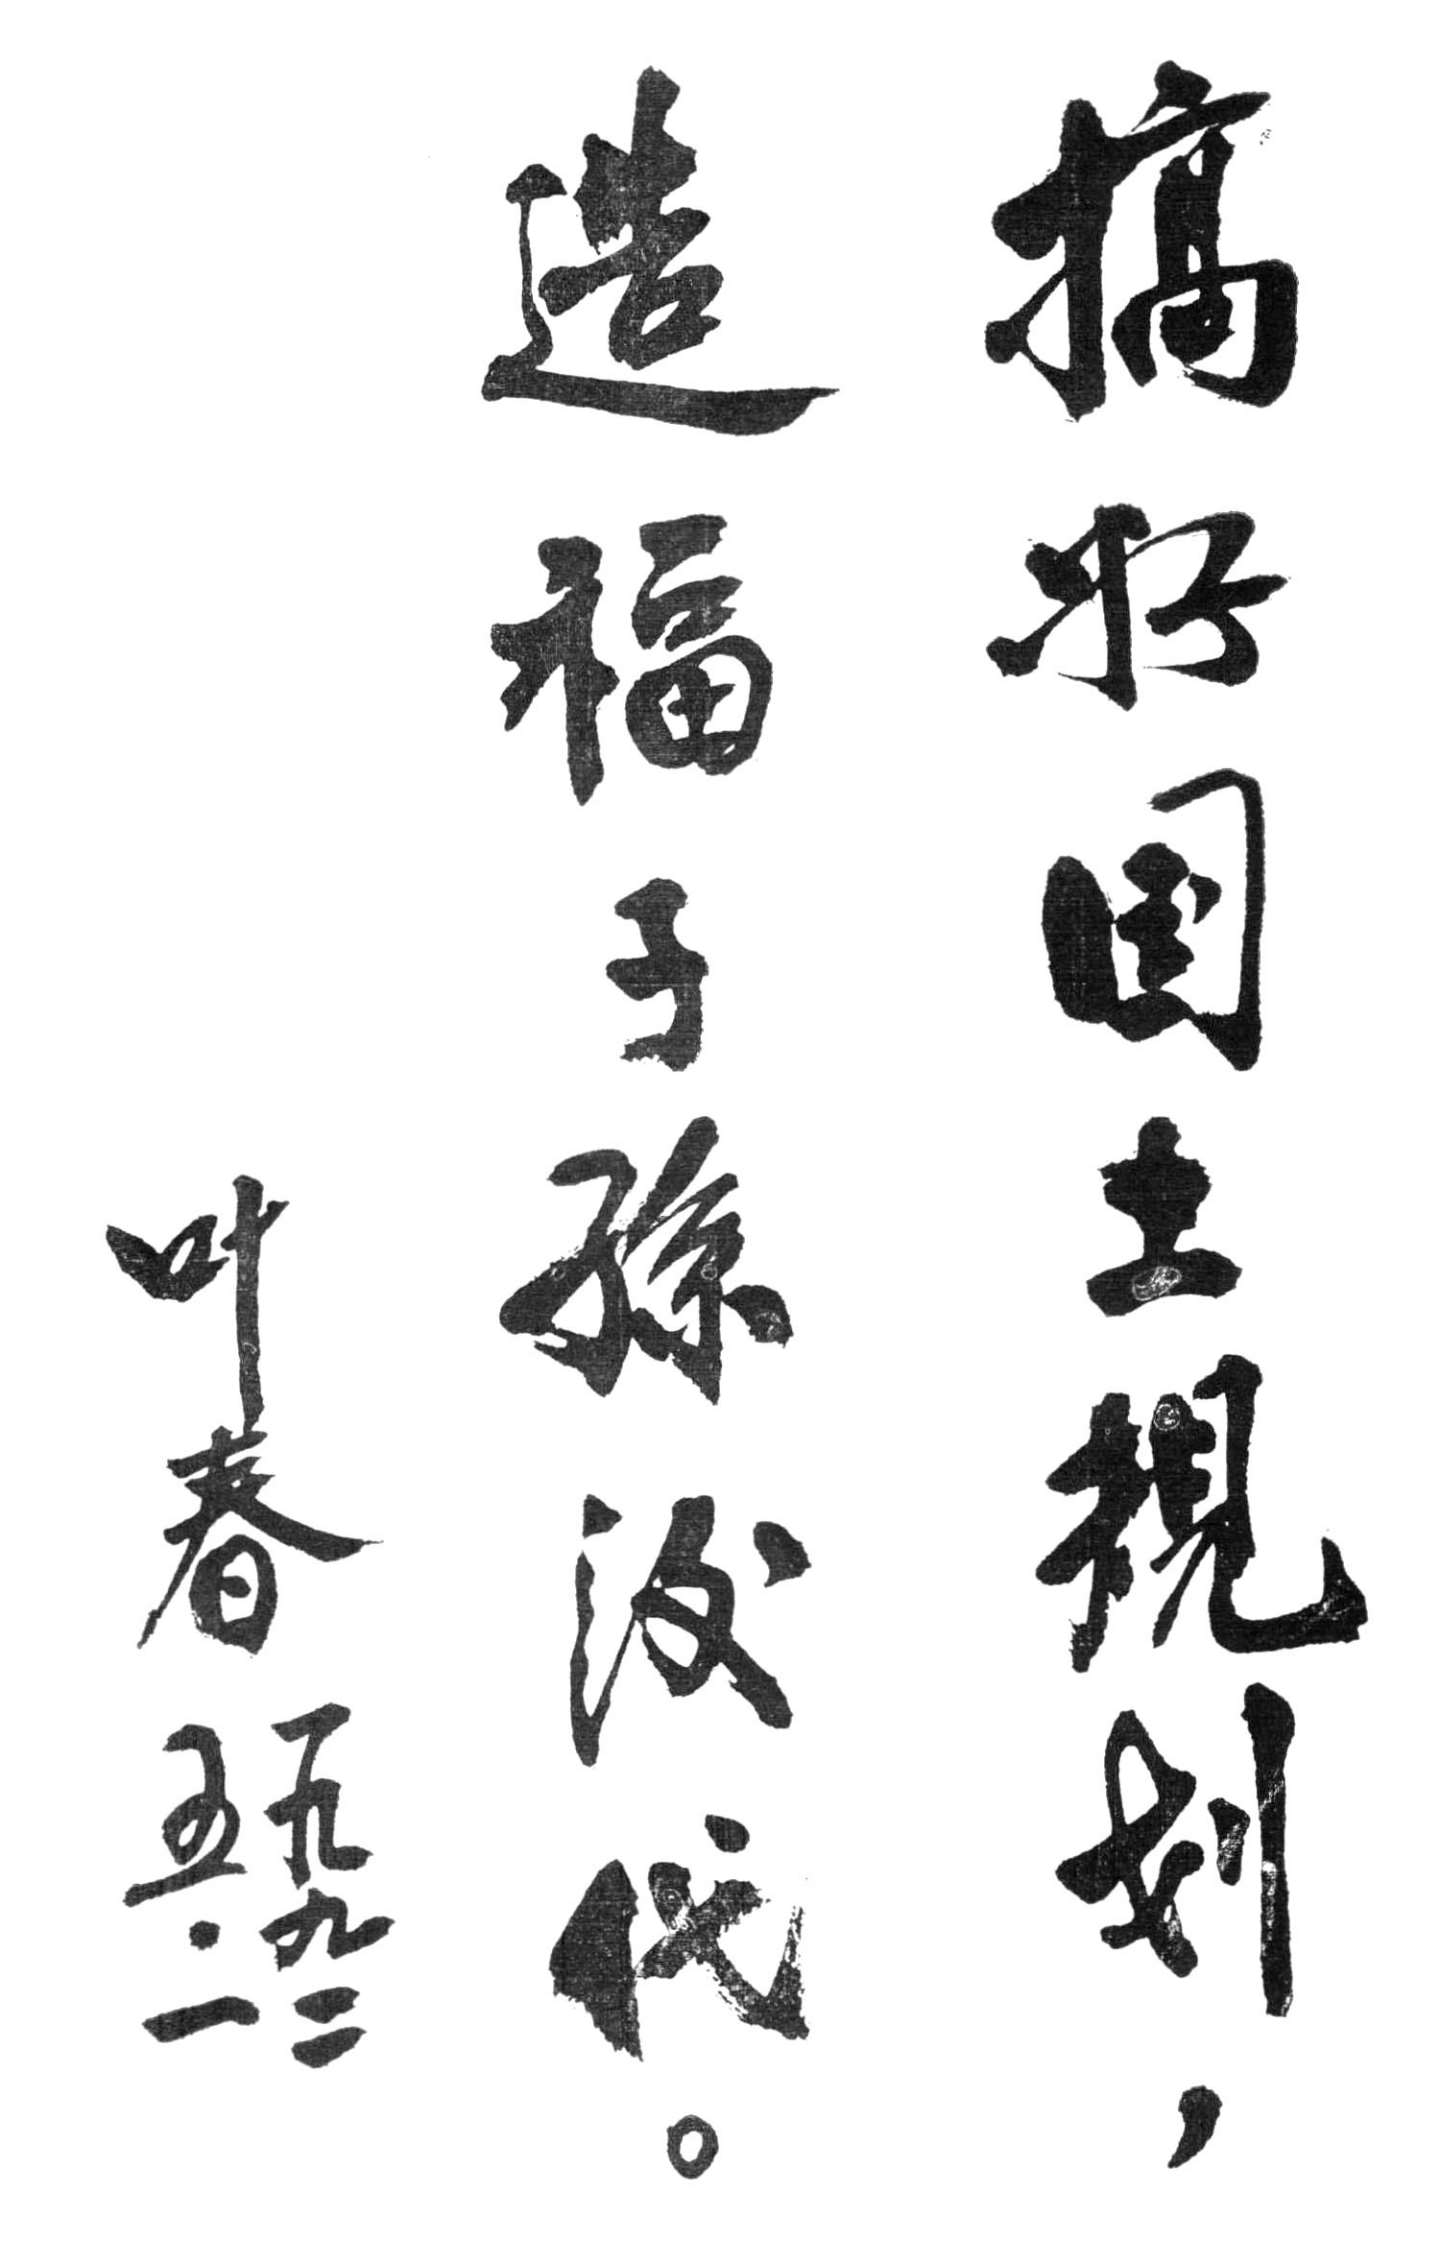 搞好国土規划，
造福子孫後代。
叶春
一九九二
五·一